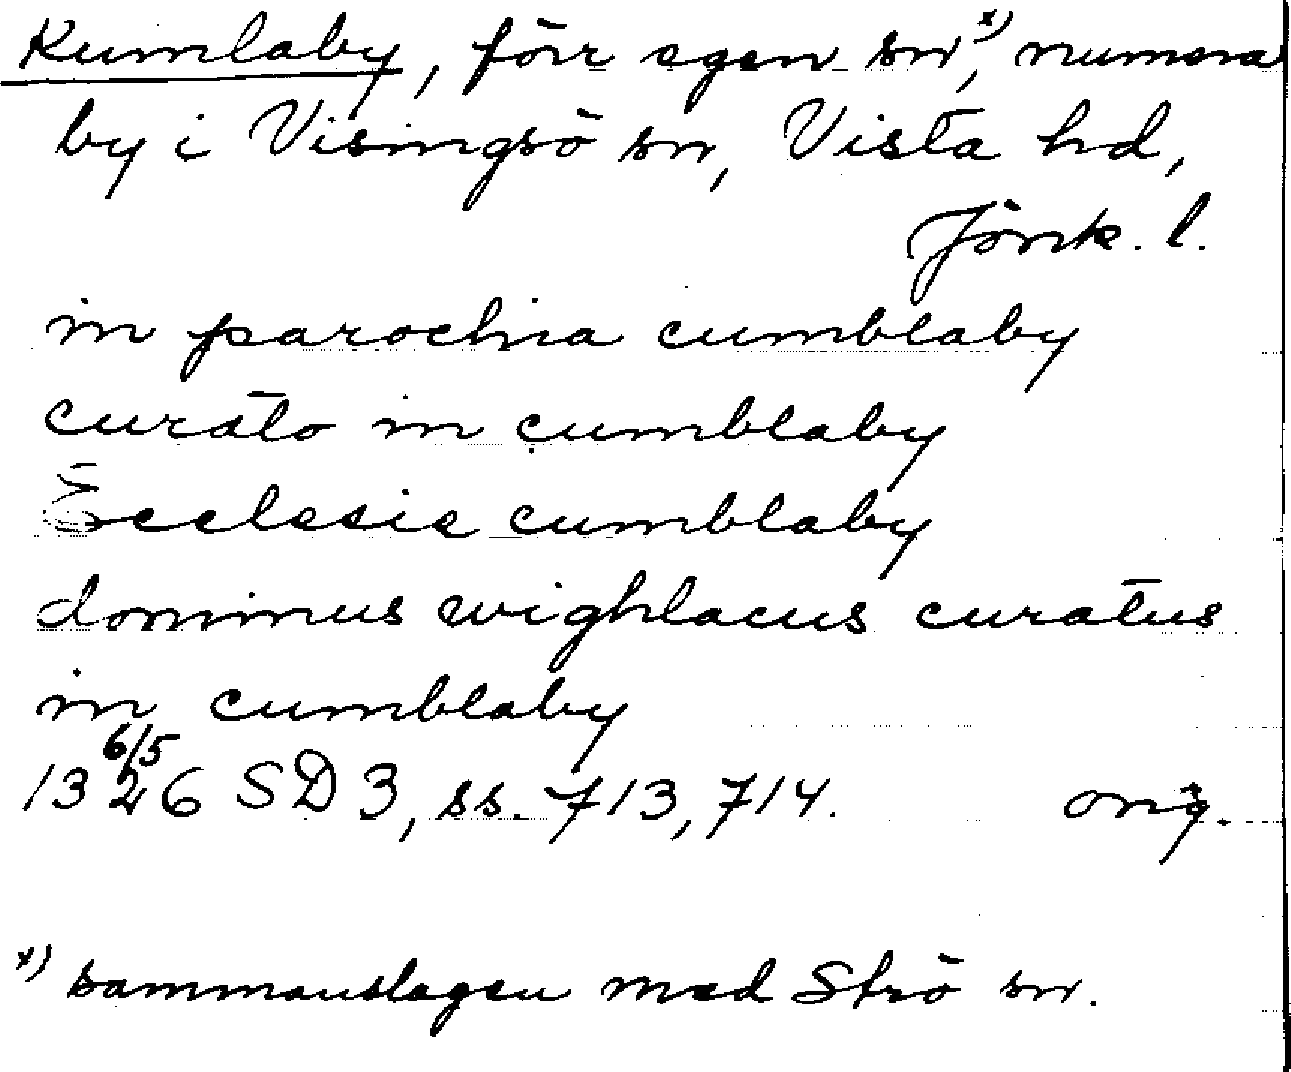 Kumlaby, förr egen sn,ˣ⁾ numera
by i Visingsö sn, Vista hd,
Jönk. l.
in parochia cumblaby
curato in cumblaby
Ecclesie cumblaby
dominus wighlacus curatus
in cumblaby
1326 6/5 SD 3, ss. 713, 714. orig.
ˣ⁾ sammanslagen med Strö sn.